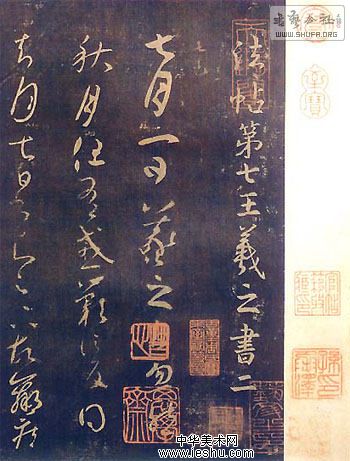 法帖第七王羲之書二
七月一日羲之白忽然
秋月但有感歎信反得
去月七日書知足下故羸疾
WWW.SHUFA.ORG
中华美术网
www.ieshu.com